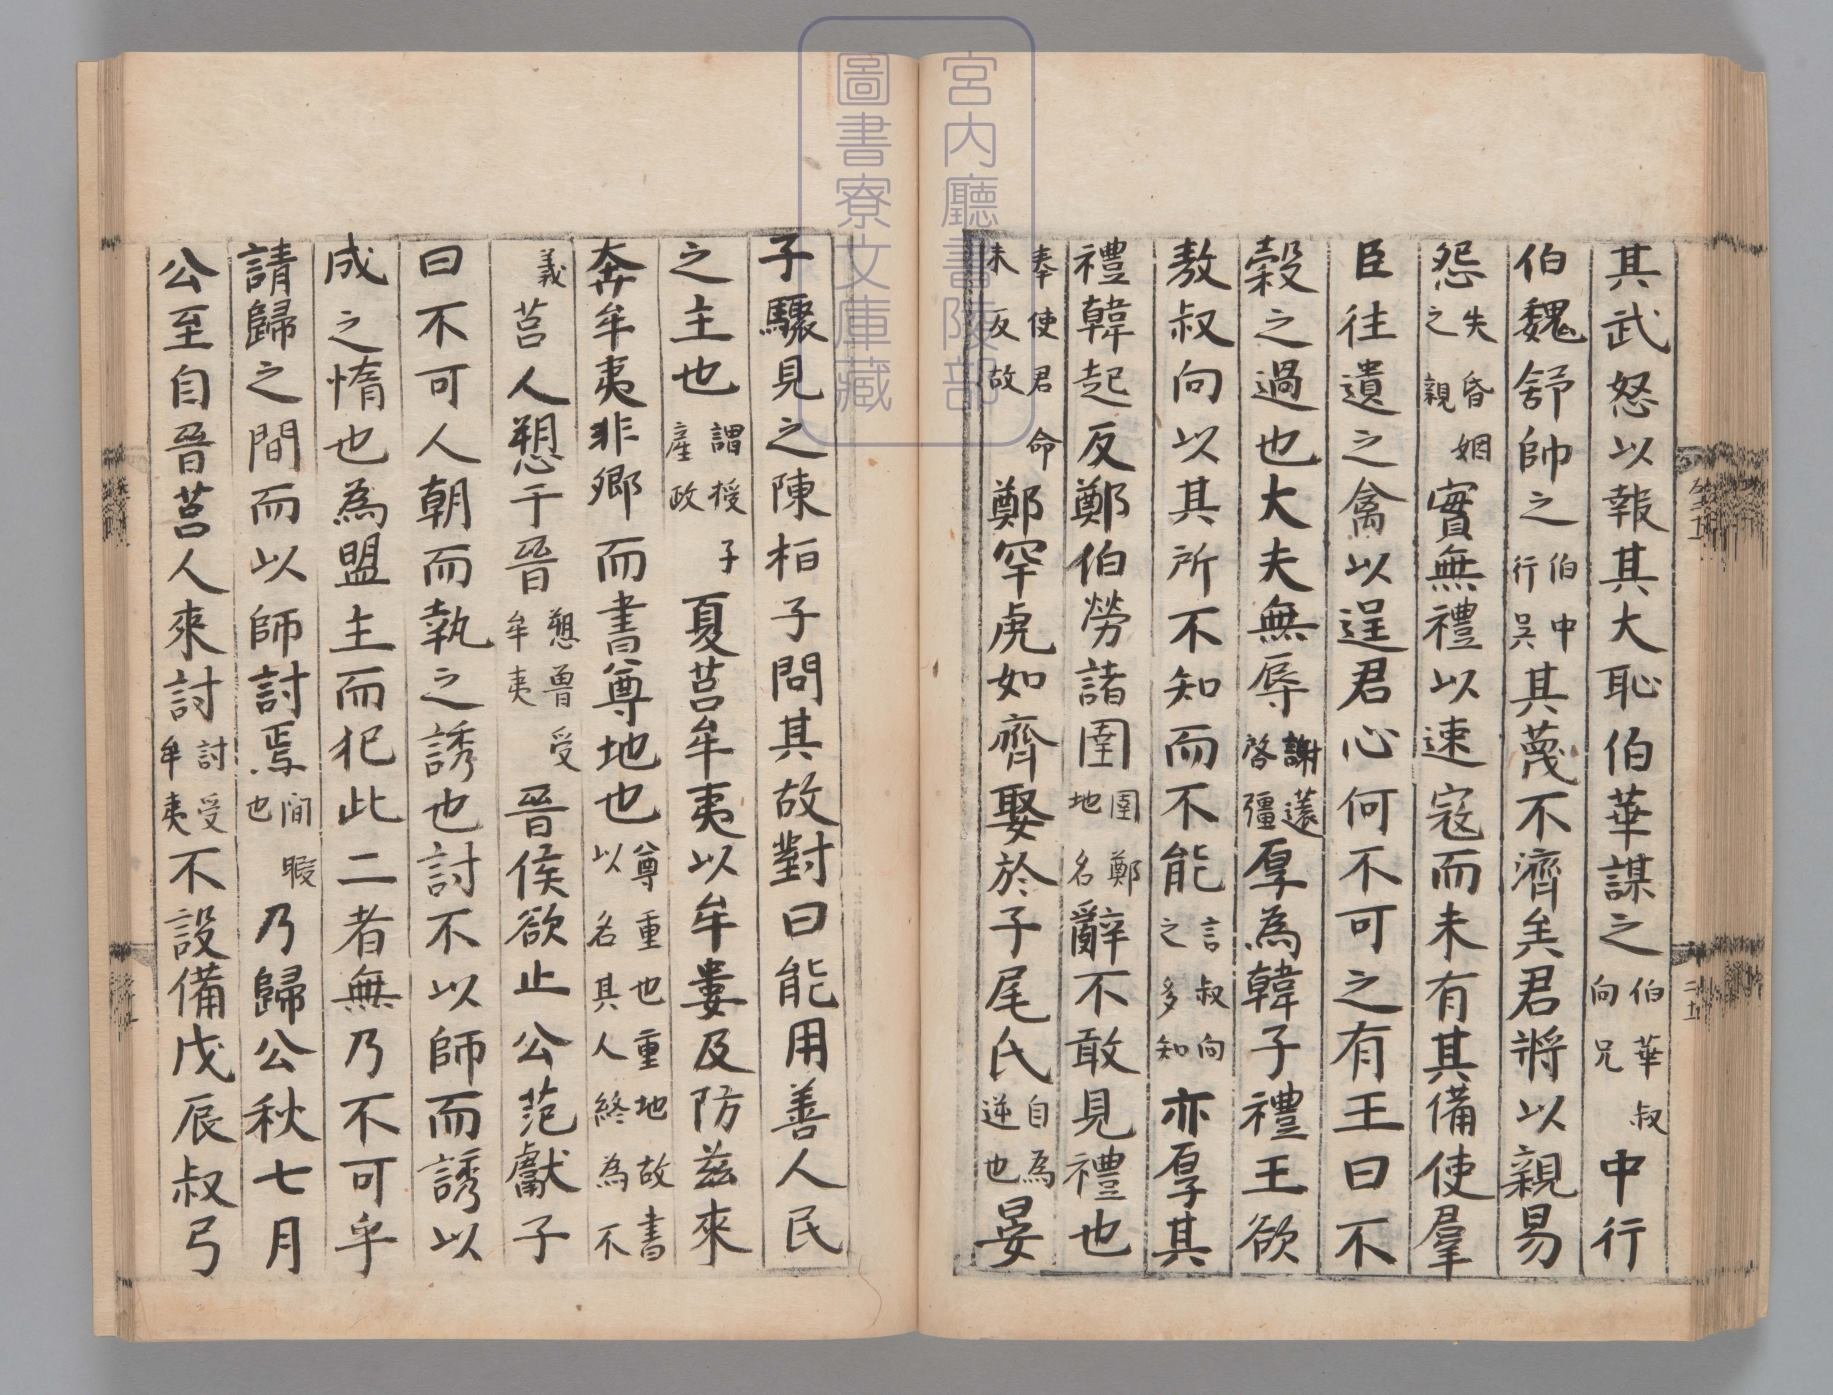 其武怒以報其大恥伯華謀之伯華叔向兄中行
伯魏舒帥之伯中行吳其蔑不濟矣君將以親易
怨失昏姻之親實無禮以速寇而未有其備使羣
臣往遺之禽以逞君心何不可之有王曰不
穀之過也大夫無辱謝薳啓彊厚為韓子禮王欲
敖叔向以其所不知而不能言叔向之多知亦厚其
禮韓起反鄭伯勞諸圉圉鄭地名辭不敢見禮也
奉使君命未反故鄭罕虎如齊娶於子尾氏自為逆也晏
子驟見之陳桓子問其故對曰能用善人民
之主也謂授子產政夏莒牟夷以牟婁及防茲來
奔牟夷非卿而書尊地也尊重也重地故書以名其人終為不
義莒人愬于晉愬魯受牟夷晉侯欲止公范獻子
曰不可人朝而執之誘也討不以師而誘以
成之惰也為盟主而犯此二者無乃不可乎
請歸之間而以師討焉間暇也乃歸公秋七月
公至自晉莒人來討討受牟夷不設備戊辰叔弓
宮内廳書陵部
圖書寮文庫藏